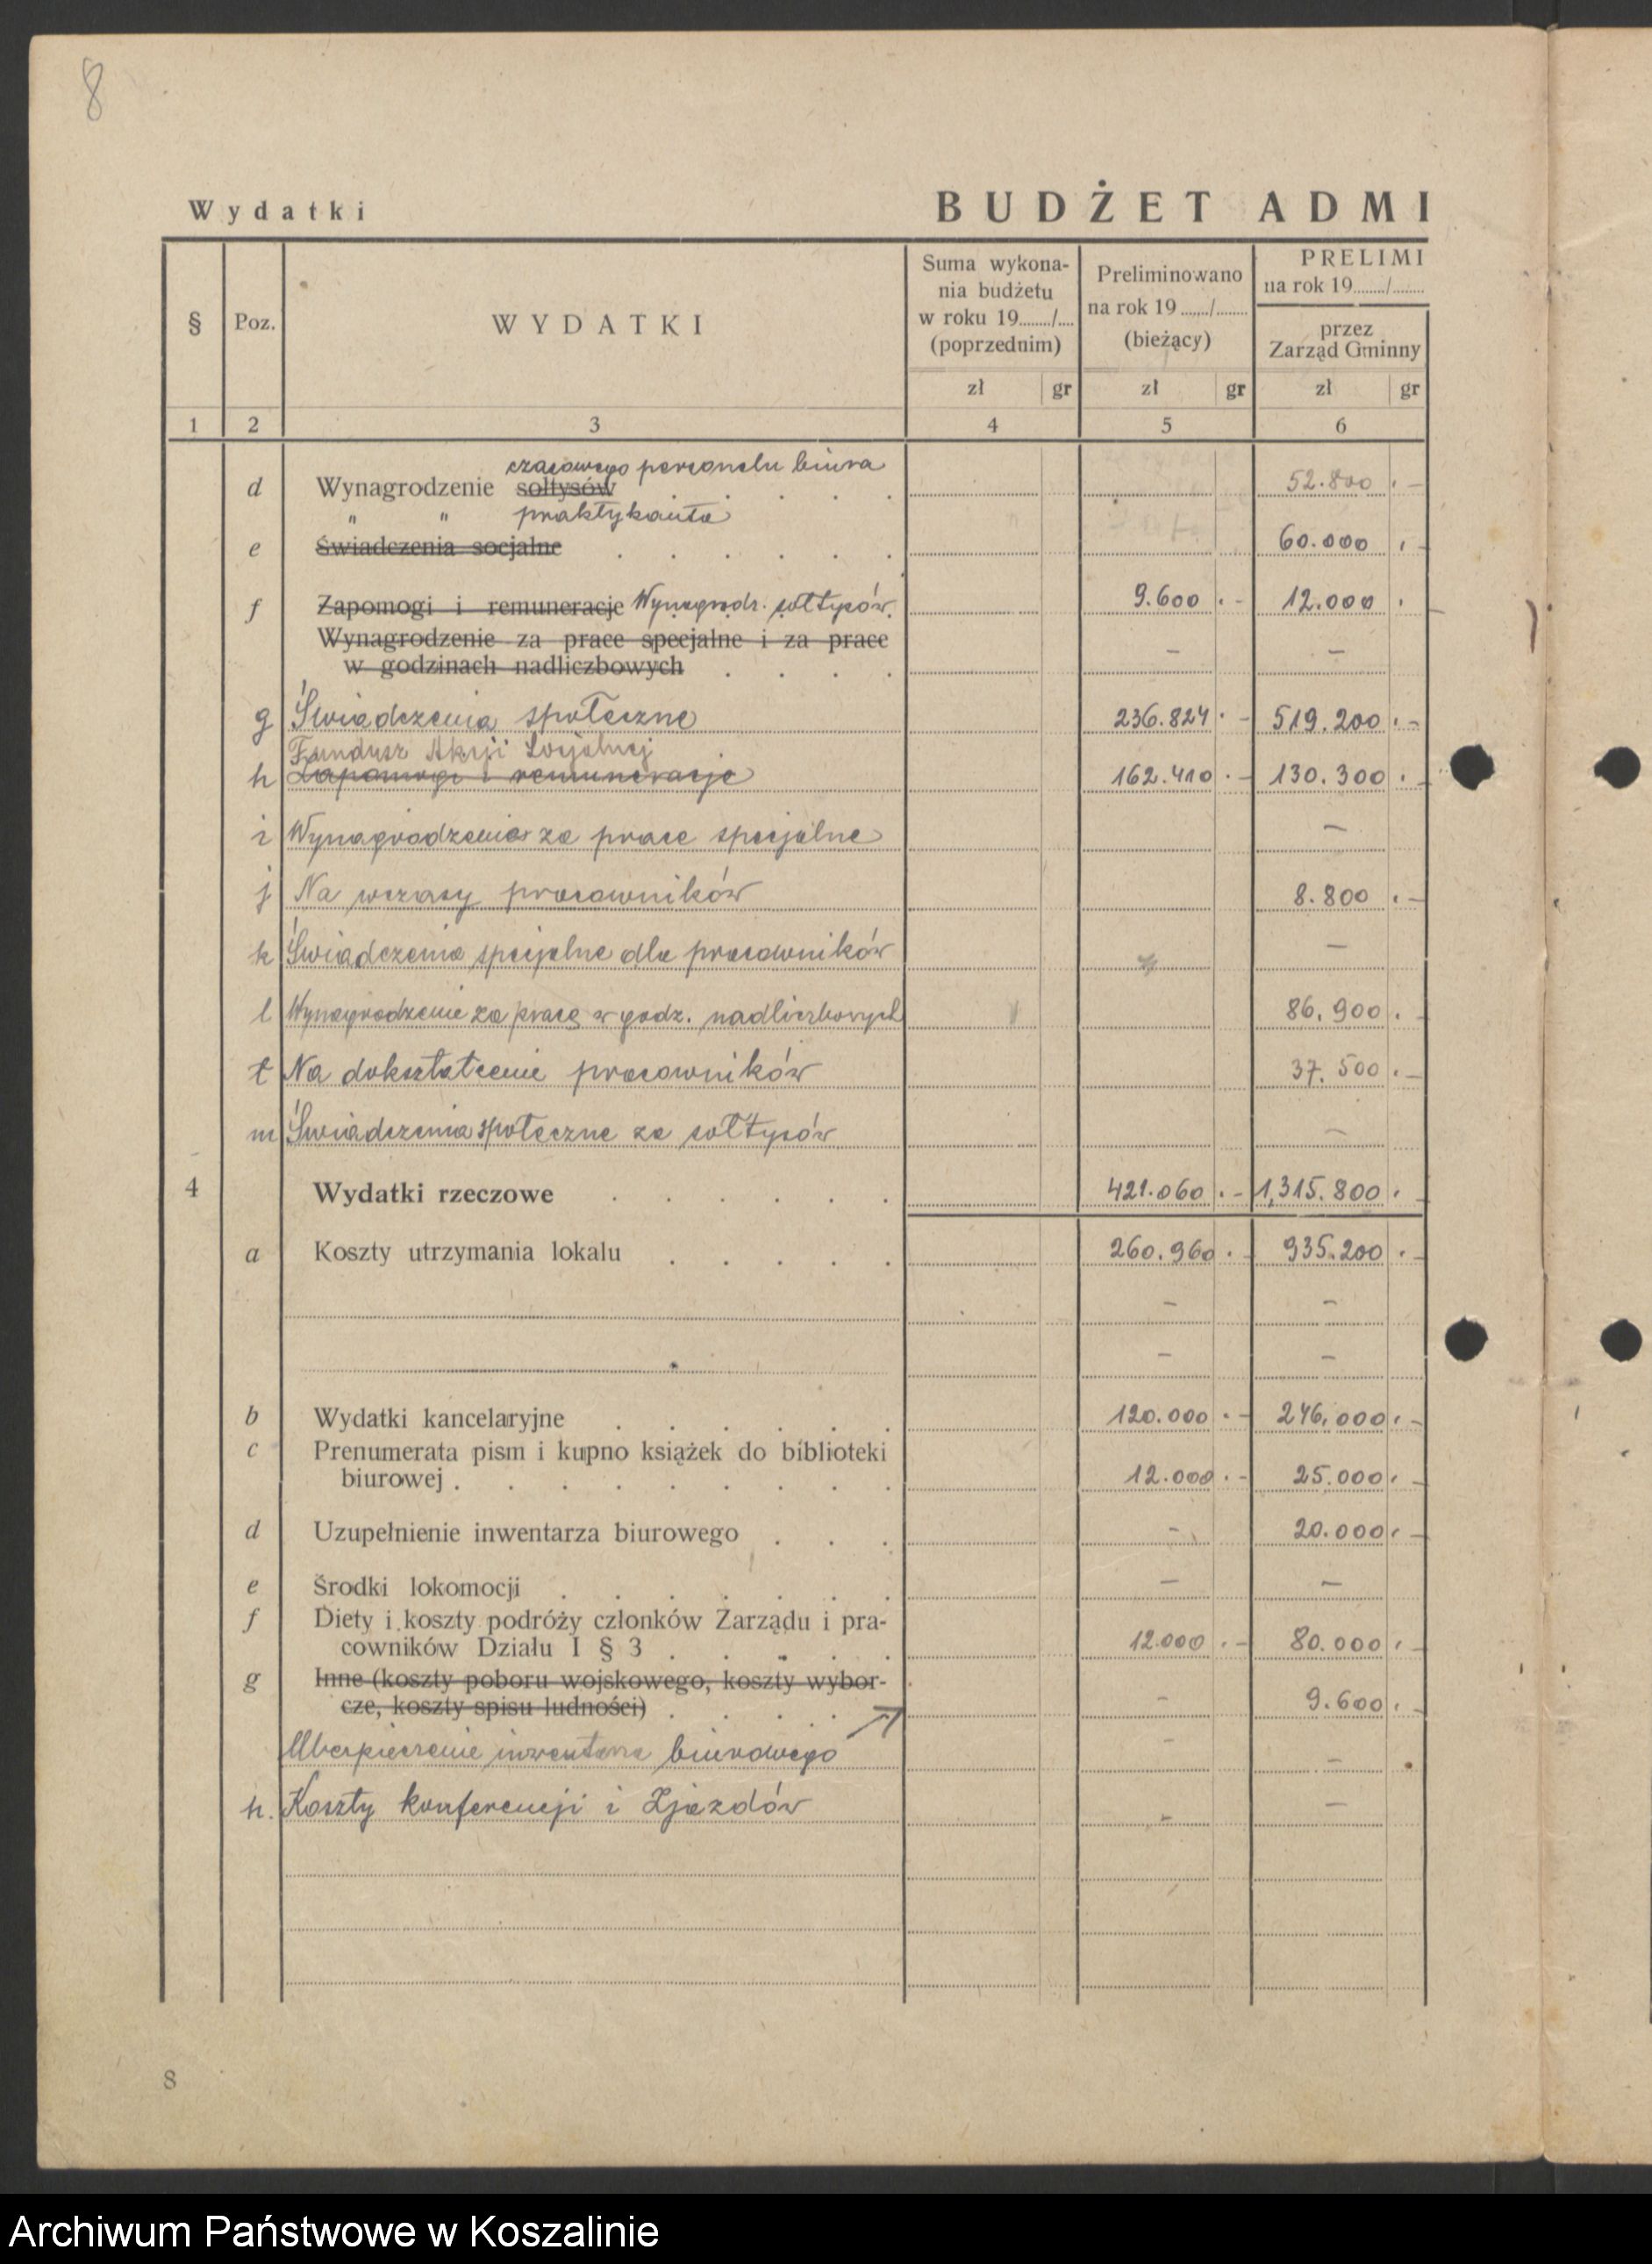 8
Wydatki
BUDŻET ADMI
§
Poz.
WYDATKI
Suma wykona-
nia budżetu
w roku 19......./....
(poprzednim)
Preliminowano
na rok 19....../.......
(bieżący)
PRELIMI
na rok 19......./.......
przez
Zarząd Gminny
zł gr zł gr zł gr
1 2 3 4 5 6
czasowego personelu biura
d Wynagrodzenie sołtysów 52.800.-
" " praktykanta
e Świadczenia socjalne 60.000.-
f Zapomogi i remuneracje Wynagrodz. sołtysów. 9.600.- 12.000.-
Wynagrodzenie za prace specjalne i za prace
w godzinach nadliczbowych - -
g Świadczenia społeczne 236.824.- 519.200.-
Fundusz Akcji Socjalnej
h Zapomogi i remuneracje 162.410.- 130.300.-
i Wynagrodzenia za prace specjalne -
j Na wczasy pracowników 8.800.-
k Świadczenia specjalne dla pracowników -
l Wynagrodzenie za pracę w godz. nadliczbowych 86.900.-
ł Na dokształcenie pracowników 37.500.-
m Świadczenia społeczne za sołtysów -
4 Wydatki rzeczowe 421.060.- 1,315.800.-
a Koszty utrzymania lokalu 260.960.- 935.200.-
- -
- -
b Wydatki kancelaryjne 120.000.- 246.000.-
c Prenumerata pism i kupno książek do biblioteki
biurowej 12.000.- 25.000.-
d Uzupełnienie inwentarza biurowego - 20.000.-
e Środki lokomocji - -
f Diety i koszty podróży członków Zarządu i pra-
cowników Działu I § 3 12.000.- 80.000.-
g Inne (koszty poboru wojskowego, koszty wybor-
cze, koszty spisu ludności) - 9.600.-
Ubezpieczenie inwentarza biurowego - -
h. Koszty konferencji i Zjazdów - -
8
Archiwum Państwowe w Koszalinie